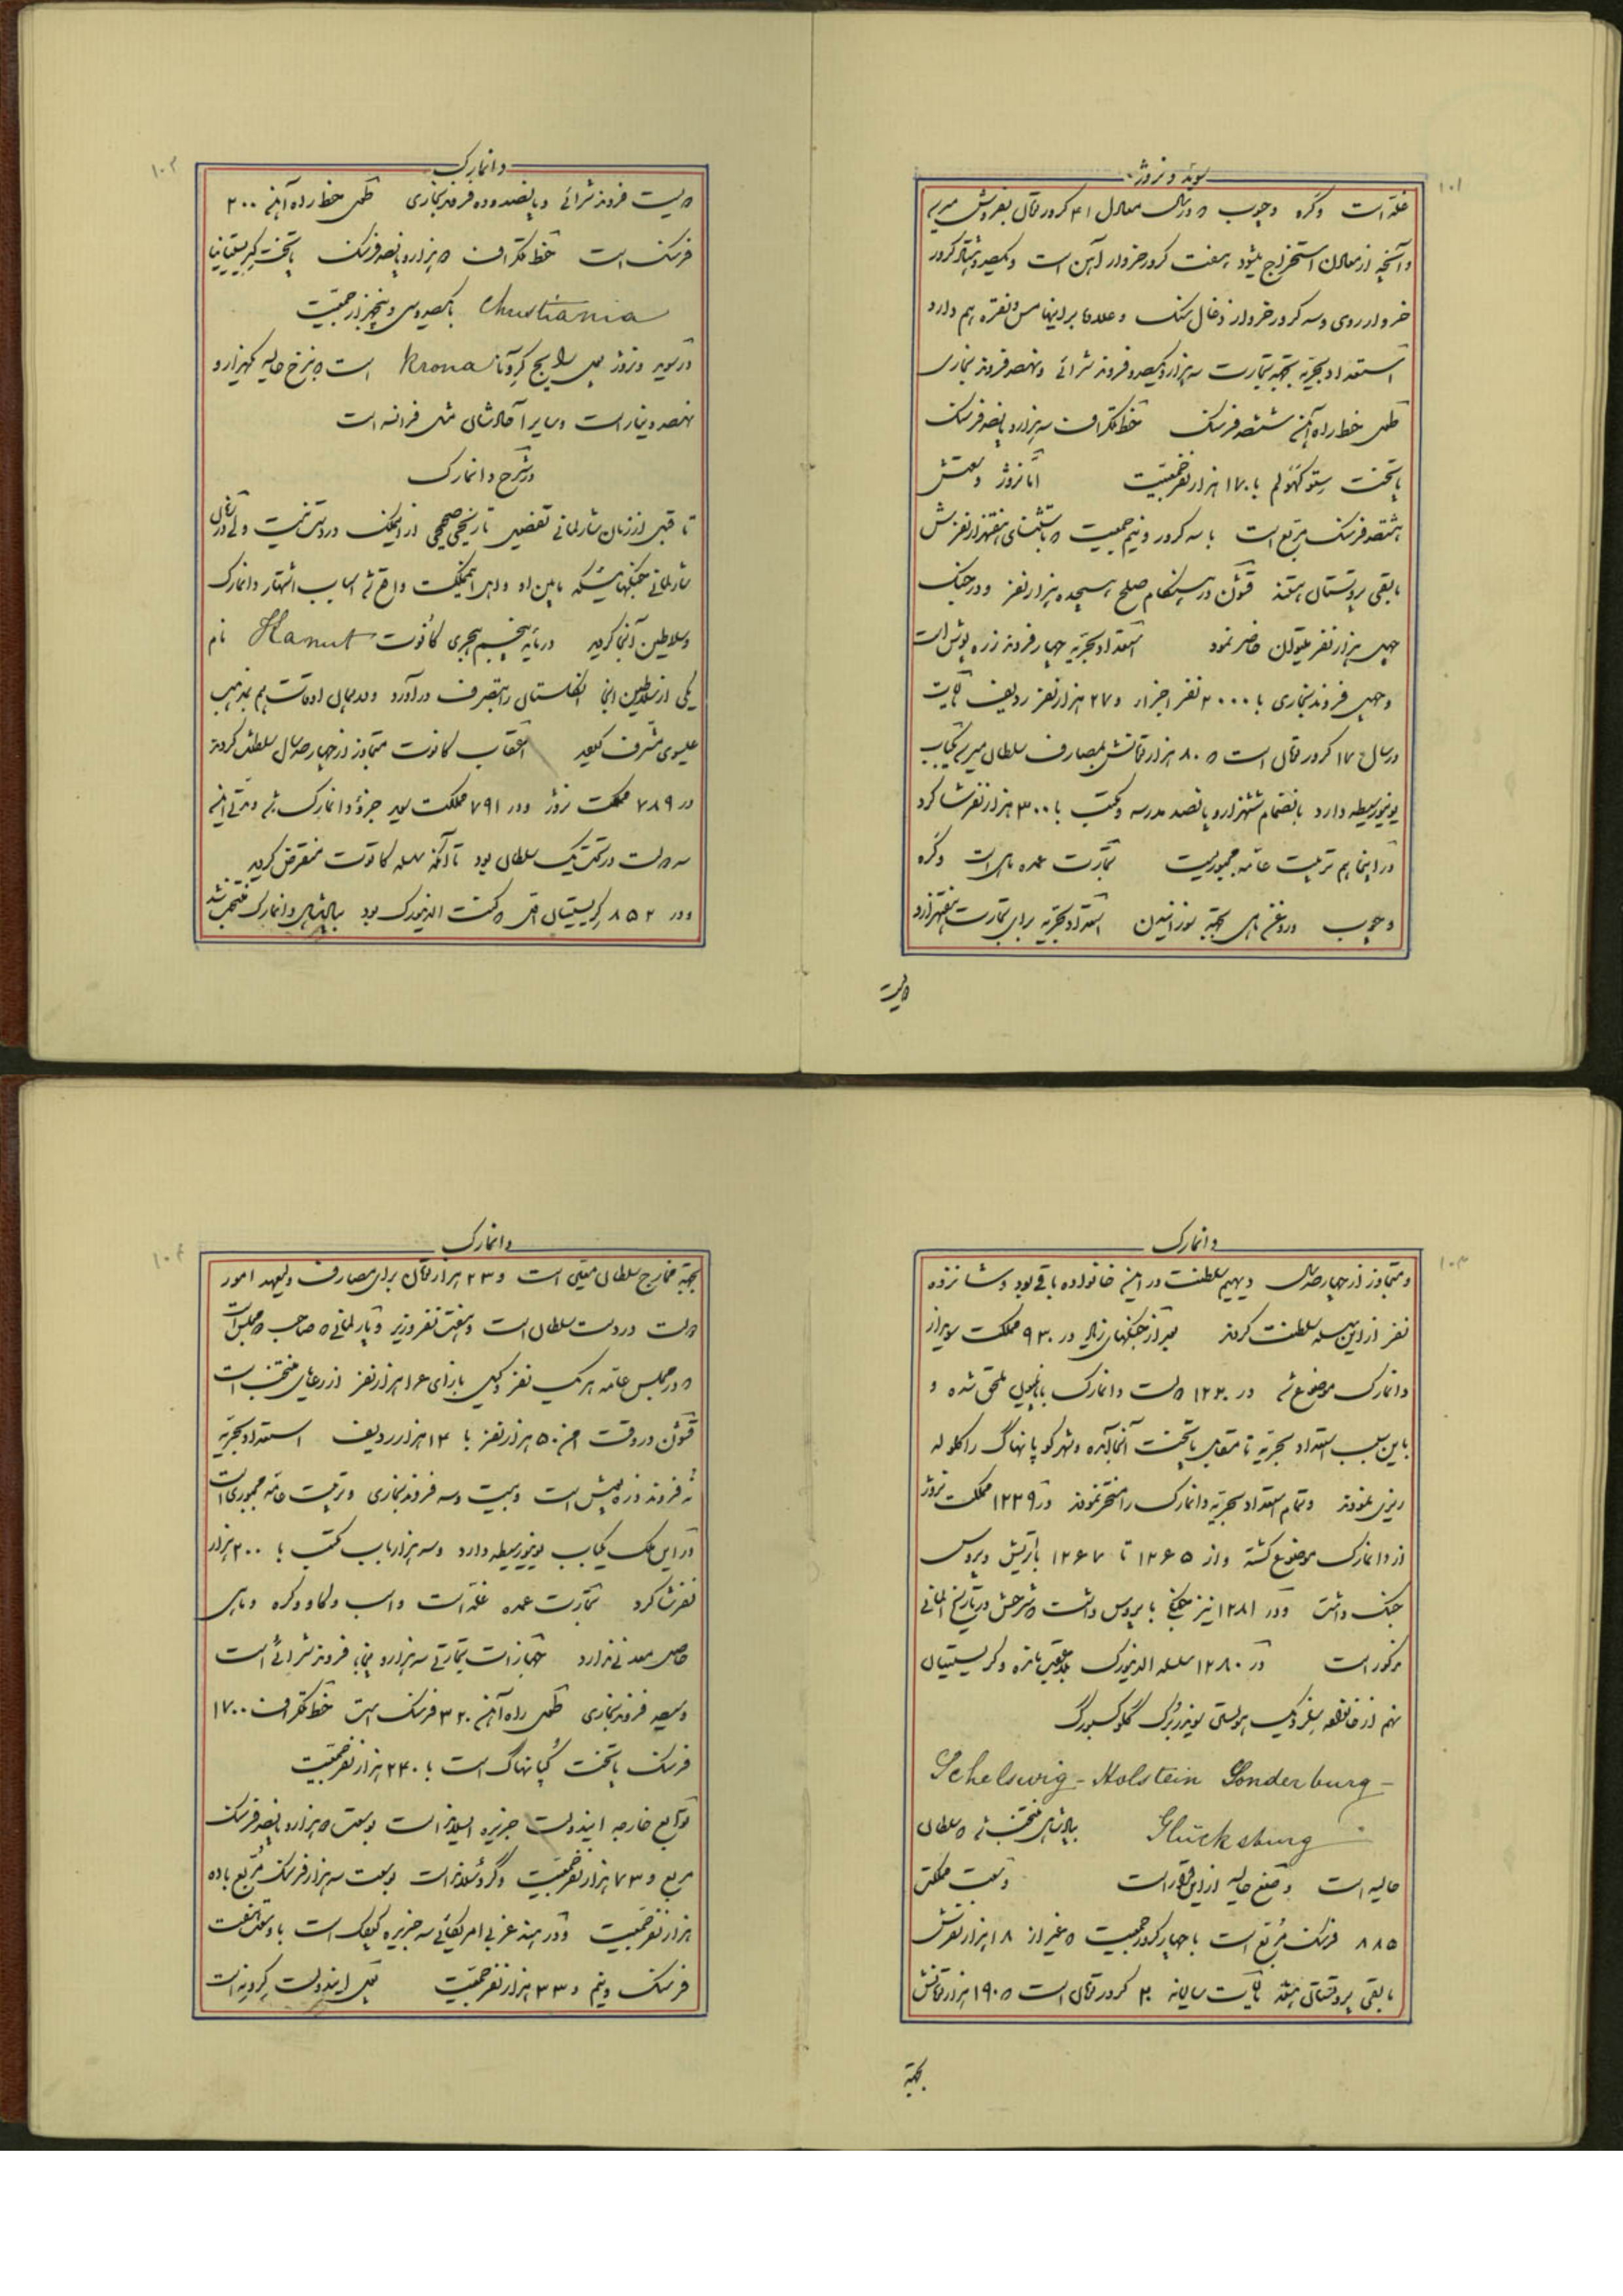 ۱۰۱
سوئد و نروژ
غله است و کره و چوب که در سال معادل ۴۱ کرور تومان بفروش میرسد
و آنچه از معادن استخراج میشود هفت کرور خروار آهن است و یکصد و هشتاد کرور
خروار روی و سه کرور خروار ذغال سنگ و علاوه بر اینها مس و نقره هم دارد
استعداد بحریه بجهة تجارت سه هزار و یکصد فروند شراعی و نهصد فروند بخاری
طول خط راه آهن ششصد فرسنک خط تلگراف سه هزار و پانصد فرسنک
پایتخت ستوکهولم با ۱۷۰ هزار نفر جمعیت اما نروژ وسعتش
هشتصد فرسنک مربع است با سه کرور و نیم جمعیت که باستثنای هفتهزار نفرش
مابقی پروتستان هستند قشون در هنگام صلح هیجده هزار نفر و در جنک
چهل هزار نفر میتوان حاضر نمود استعداد بحریه چهار فروند زره پوش است
و چهل فروند بخاری با ۲۰۰۰ نفر اجزاء و ۲۷ هزار نفر ردیف مالیات
در سال ۱۷ کرور تومان است که ۸۰ هزار تومانش بمصارف سلطان میرسد یکباب
یونیورسیطه دارد بانضمام ششهزار و پانصد مدرسه و مکتب با ۳۰۰ هزار نفر شاگرد
در اینجا هم تربیت عامه مجبوریست تجارت عمده ماهی است و کره
و چوب و روغن ماهی بجهة سوزانیدن استعداد بحریه برای تجارت هفتهزار و
دویست
۱۰۲
دانمارک
دویست فروند شراعی و پانصد و ده فروند بخاری طول خط راه آهن ۲۰۰
فرسنک است خط تلگراف دو هزار و پانصد فرسنک پایتخت کریستیانیا
Christiania با یکصد و سی و پنجهزار جمعیت
در سوئد و نروژ پول رایج کرونا Krona است که بنرخ حالیه یکهزار و
نهصد دینار است و سایر آحادشان مثل فرانسه است
در شرح دانمارک
تا قبل از زمان شارلمانی تفضیل تاریخی صحیحی از این ملک در دست نیست ولی در زمان
شارلمانی جنگهائیکه مابین او و اهل این مملکت واقع شد اسباب اشتهار دانمارک
و سلاطین آنجا گردید در مایه پنجم هجری کانوت Hanut نام
یکی از سلاطین اینجا انگلستان را بتصرف درآورد و در همان اوقات هم بمذهب
عیسوی مشرف گردید اعقاب کانوت متجاوز از چهار صد سال سلطنت کردند
در ۷۸۹ مملکت نروژ و در ۷۹۱ مملکت سوئد جزو دانمارک شد و مدتی این
سه دولت در تحت یک سلطان بود تا آنکه سلسله کانوت منقرض گردید
و در ۸۵۲ کریستیان اول که کنت الدنبورک بود بپادشاهی دانمارک منتخب شد
۱۰۳
دانمارک
و متجاوز از چهار صد سال دیهیم سلطنت در این خانواده باقی بود و شانزده
نفر از این سلسله سلطنت کردند بعد از جنگهای زیاد در ۹۳۰ مملکت سوئد از
دانمارک موضوع شد در ۱۲۲۰ دولت دانمارک با ناپلیون ملحق شده و
باین سبب استعداد بحریه تا مقابل پایتخت آنجا آمده و شهر کوپانهاگ را گلوله
ریزی نمودند و تمام استعداد بحریه دانمارک را مسخر نمودند در ۱۲۲۹ مملکت نروژ
از دانمارک موضوع گشته و از ۱۲۶۵ تا ۱۲۶۷ با اتریش و پروس
جنک داشت و در ۱۲۸۱ نیز جنگی با پروس داشت که شرحش در تاریخ المانی
مذکور است در ۱۲۸۰ سلسله الدنبورک بلاعقب مانده و کریستیان
نهم از خانواده سلزویک هولستن سوندربرگ گلوکسبورگ
Schelswig - Holstein Sonderburg -
Glücksburg بپادشاهی منتخب شد که سلطان
حالیه است وضع حالیه از این قرار است وسعت مملکت
۸۸۵ فرسنک مربع است با چهار کرور جمعیت که غیر از ۱۸ هزار نفرش
مابقی پروتستانی هستند مالیات سالیانه ۲۰ کرور تومان است که ۱۹۰ هزار تومانش
بجهة
۱۰۴
دانمارک
بجهة مخارج سلطان معین است و ۲۳ هزار تومان برای مصارف ولیعهد امور
دولت در دست سلطان است و هفت نفر وزیر و پارلمانی که صاحب دو مجلس است
که در مجلس عامه هر یک نفر وکیل بازای ۱۶ هزار نفر از رعایا منتخب است
قشون در وقت امن ۵۰ هزار نفر با ۱۴ هزار ردیف استعداد بحریه
نه فروند زره پوش است و بیست و سه فروند بخاری و تربیت عامه مجبوری است
در این ملک یکباب یونیورسیطه دارد و سه هزار باب مکتب با ۲۰۰ هزار
نفر شاگرد تجارت عمده غله است و اسب و گاو و کره و ماهی
حاصل معدنی ندارد جهازات تجارتی سه هزار و پنجاه فروند شراعی است
و سیصد فروند بخاری طول راه آهن ۳۲۰ فرسنک است خط تلگراف ۱۷۰۰
فرسنک پایتخت کپانهاگ است با ۲۴۰ هزار نفر جمعیت
توابع خارجه ایندولت جزیره ایسلاند است بوسعت دو هزار و پانصد فرسنک
مربع و ۷۳ هزار نفر جمعیت و گروئنلاند است بوسعت سه هزار فرسنک مربع با ده
هزار نفر جمعیت و در هند غربی امریکائی سه جزیره کوچک است با وسعت هفت
فرسنک و نیم و ۳۳ هزار نفر جمعیت پول ایندولت کرونه است